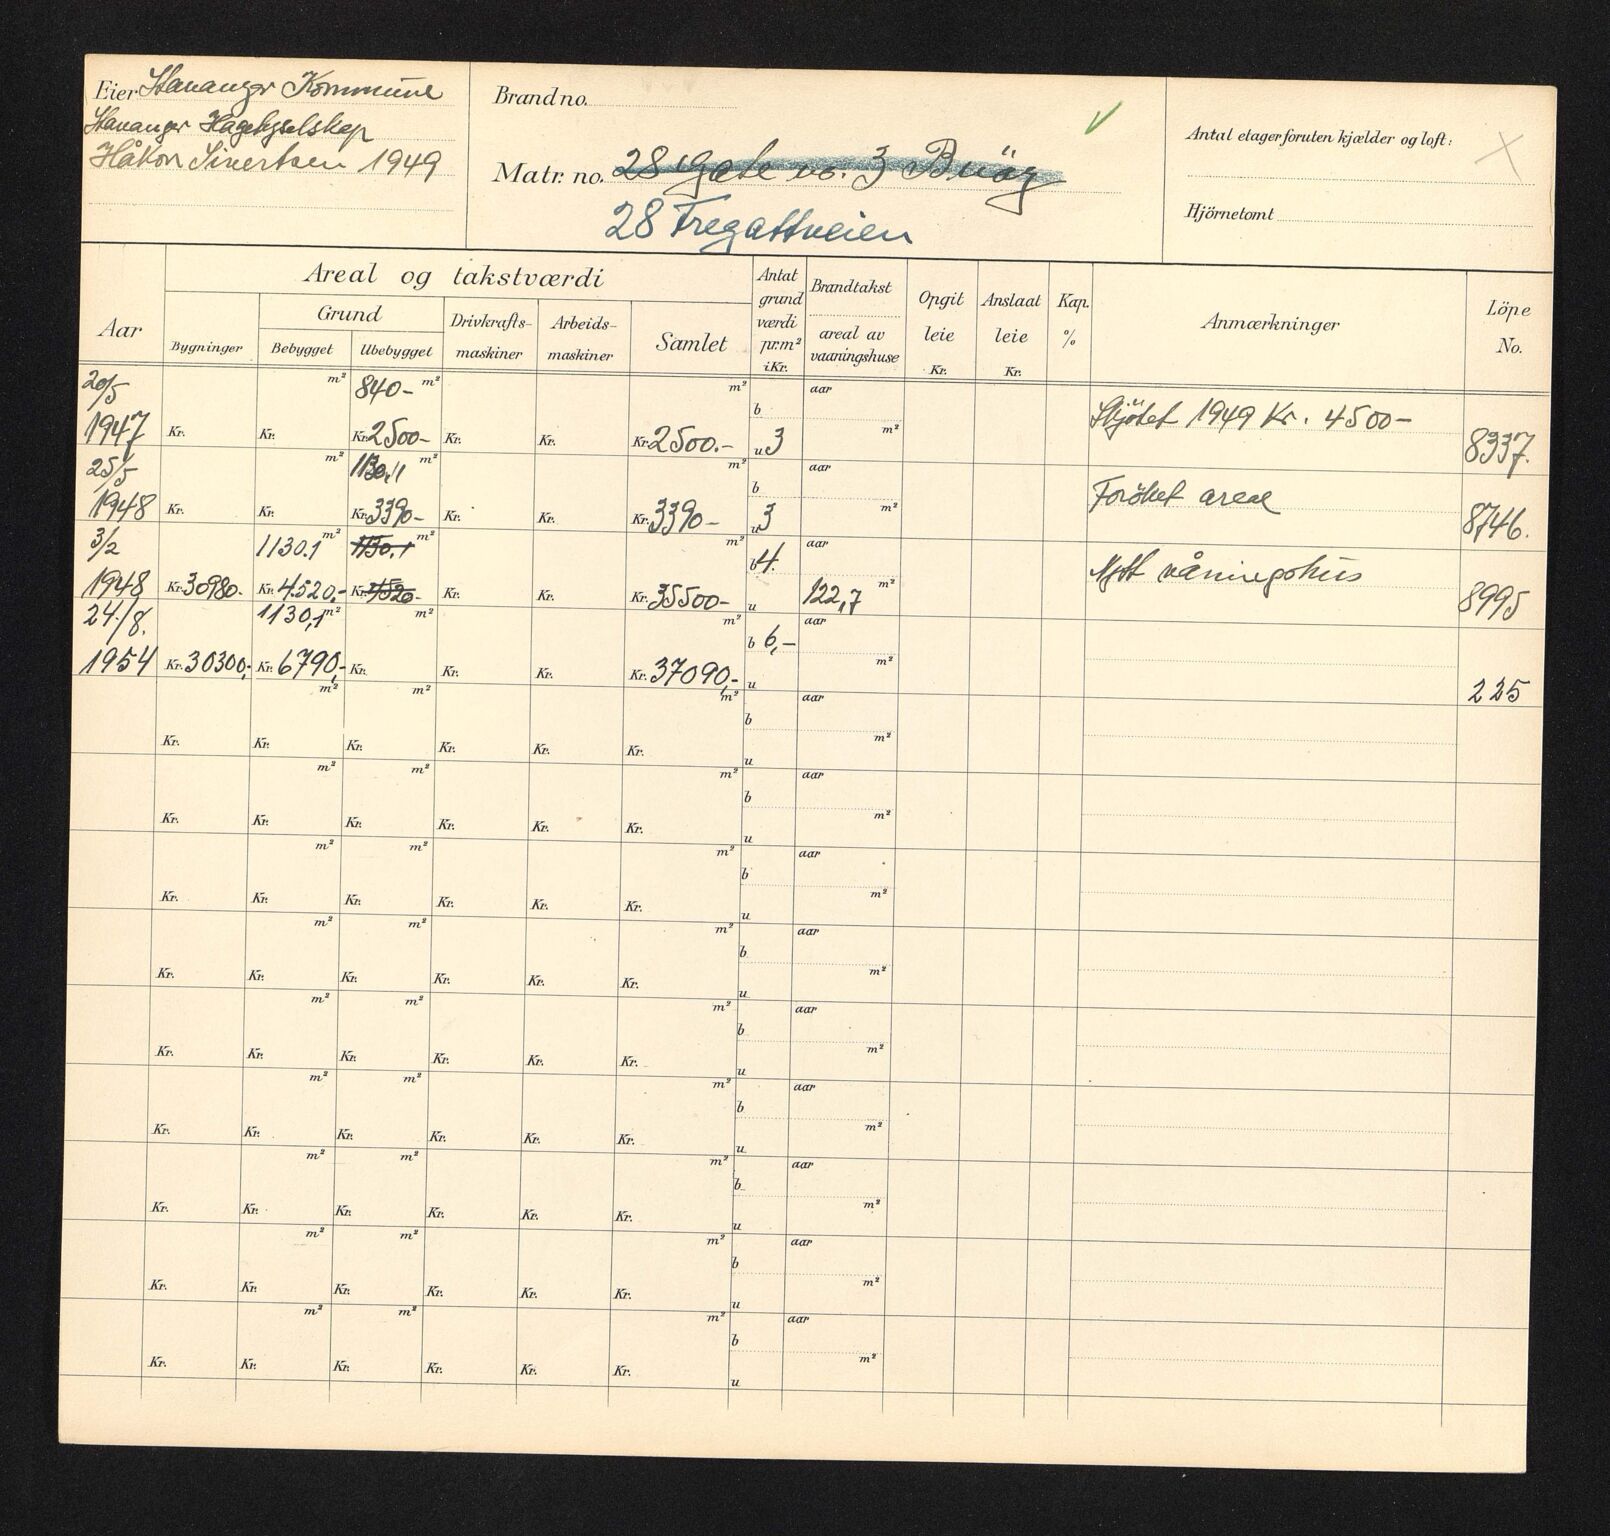 Eier Stavanger Kommune
Stavanger Hagebyselskap
Håkon Sivertsen 1949
Brand no.
Matr. no. 28 Gate no. 3 Buøy
28 Fregattveien
Antal etager foruten kjælder og loft:
Hjörnetomt
Aar
Areal og takstværdi
Bygninger
Grund
Bebygget
Ubebygget
Drivkrafts-
maskiner
Arbeids-
maskiner
Samlet
Antat
grund
værdi
pr.m²
i Kr.
Brandtakst
areal av
vaaningshuse
Opgit
leie
Kr.
Anslaat
leie
Kr.
Kap.
%
Anmærkninger
Löpe
No.
20/5 m² 840- m² m² aar
1947 Kr. Kr. Kr. 2500- Kr. Kr. Kr. 2500.- b u 3 m² Skjötet 1949 Kr. 4500- 8337.
25/5 m² 1130,1 m² m² aar
1948 Kr. Kr. Kr. 3390- Kr. Kr. Kr. 3390- b u 3 m² Foröket areal 8746.
3/2 1130.1 m² 1130.1 m² m² b 4. aar
1948 Kr. 30980.- Kr. 4.520,- Kr. 4520- Kr. Kr. Kr. 35500- u 122,7 m² Nytt våningshus 8995
24./8. 1130,1 m² m² m² b 6,- aar
1954 Kr. 30300,- Kr. 6790,- Kr. Kr. Kr. Kr. 37090,- u m² 225
m² m² m² b aar
Kr. Kr. Kr. Kr. Kr. Kr. u m²
m² m² m² b aar
Kr. Kr. Kr. Kr. Kr. Kr. u m²
m² m² m² b aar
Kr. Kr. Kr. Kr. Kr. Kr. u m²
m² m² m² b aar
Kr. Kr. Kr. Kr. Kr. Kr. u m²
m² m² m² b aar
Kr. Kr. Kr. Kr. Kr. Kr. u m²
m² m² m² b aar
Kr. Kr. Kr. Kr. Kr. Kr. u m²
m² m² m² b aar
Kr. Kr. Kr. Kr. Kr. Kr. u m²
m² m² m² b aar
Kr. Kr. Kr. Kr. Kr. Kr. u m²
m² m² m² b aar
Kr. Kr. Kr. Kr. Kr. Kr. u m²